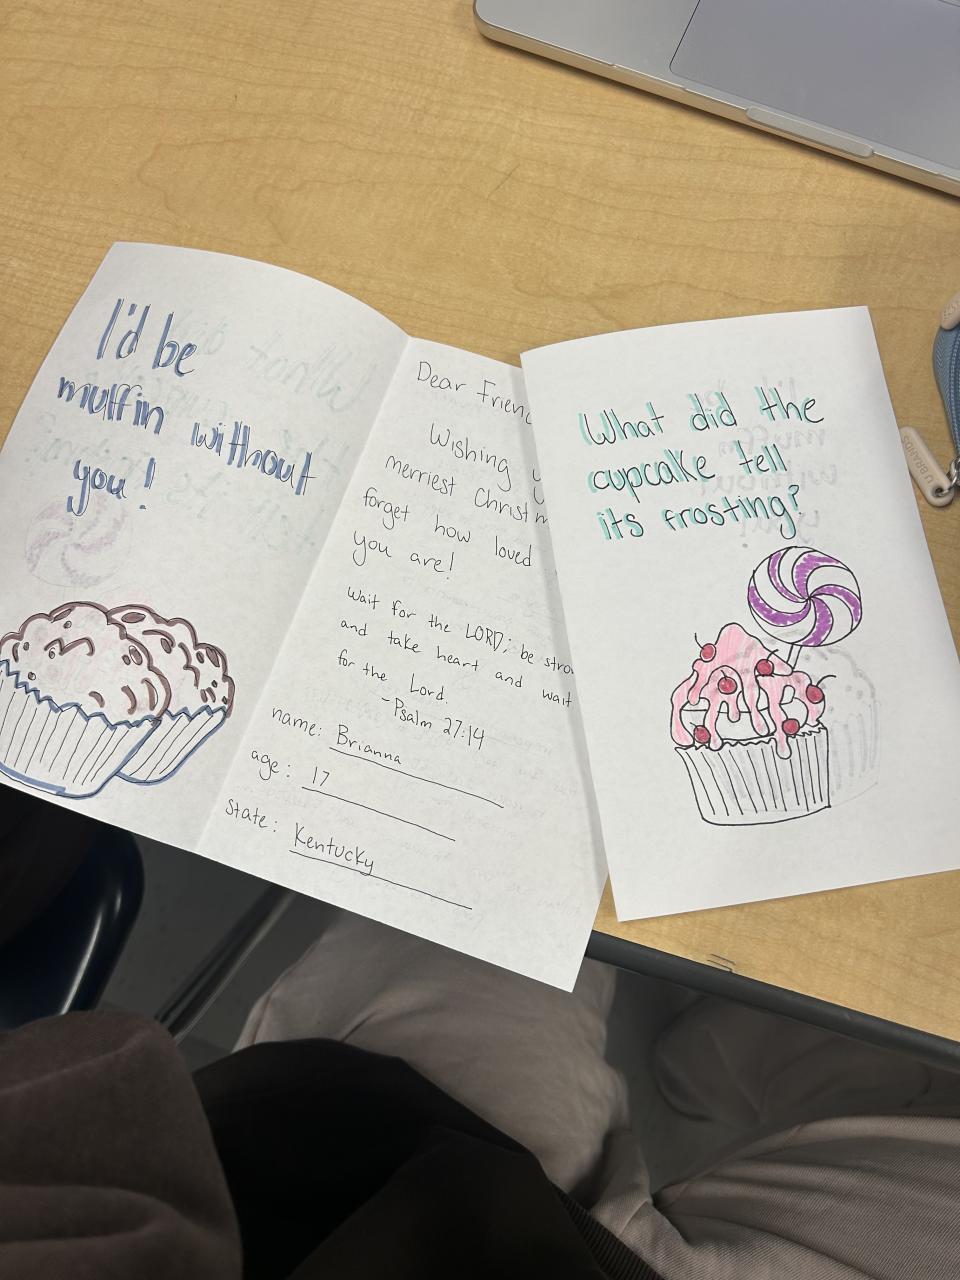 I'd be
muffin without
you!
Dear
Wishing
merriest
forget how loved
you are!
Wait for the LORD; be
and take heart and wait
for the Lord.
-Psalm 27:14
name: Brianna
age: 17
state: Kentucky
What did the
cupcake tell
its frosting?